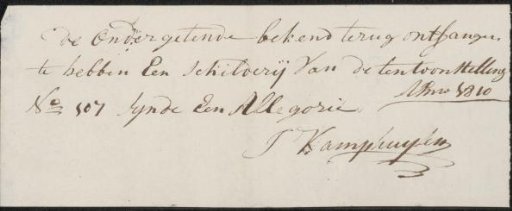 De Ondergetende bekend terug ontfangen
te hebben Een Schilderij Van de tentoonstelling
Anno 1810
No 107 Zynde Een Allegorie
J Kamphuyzen